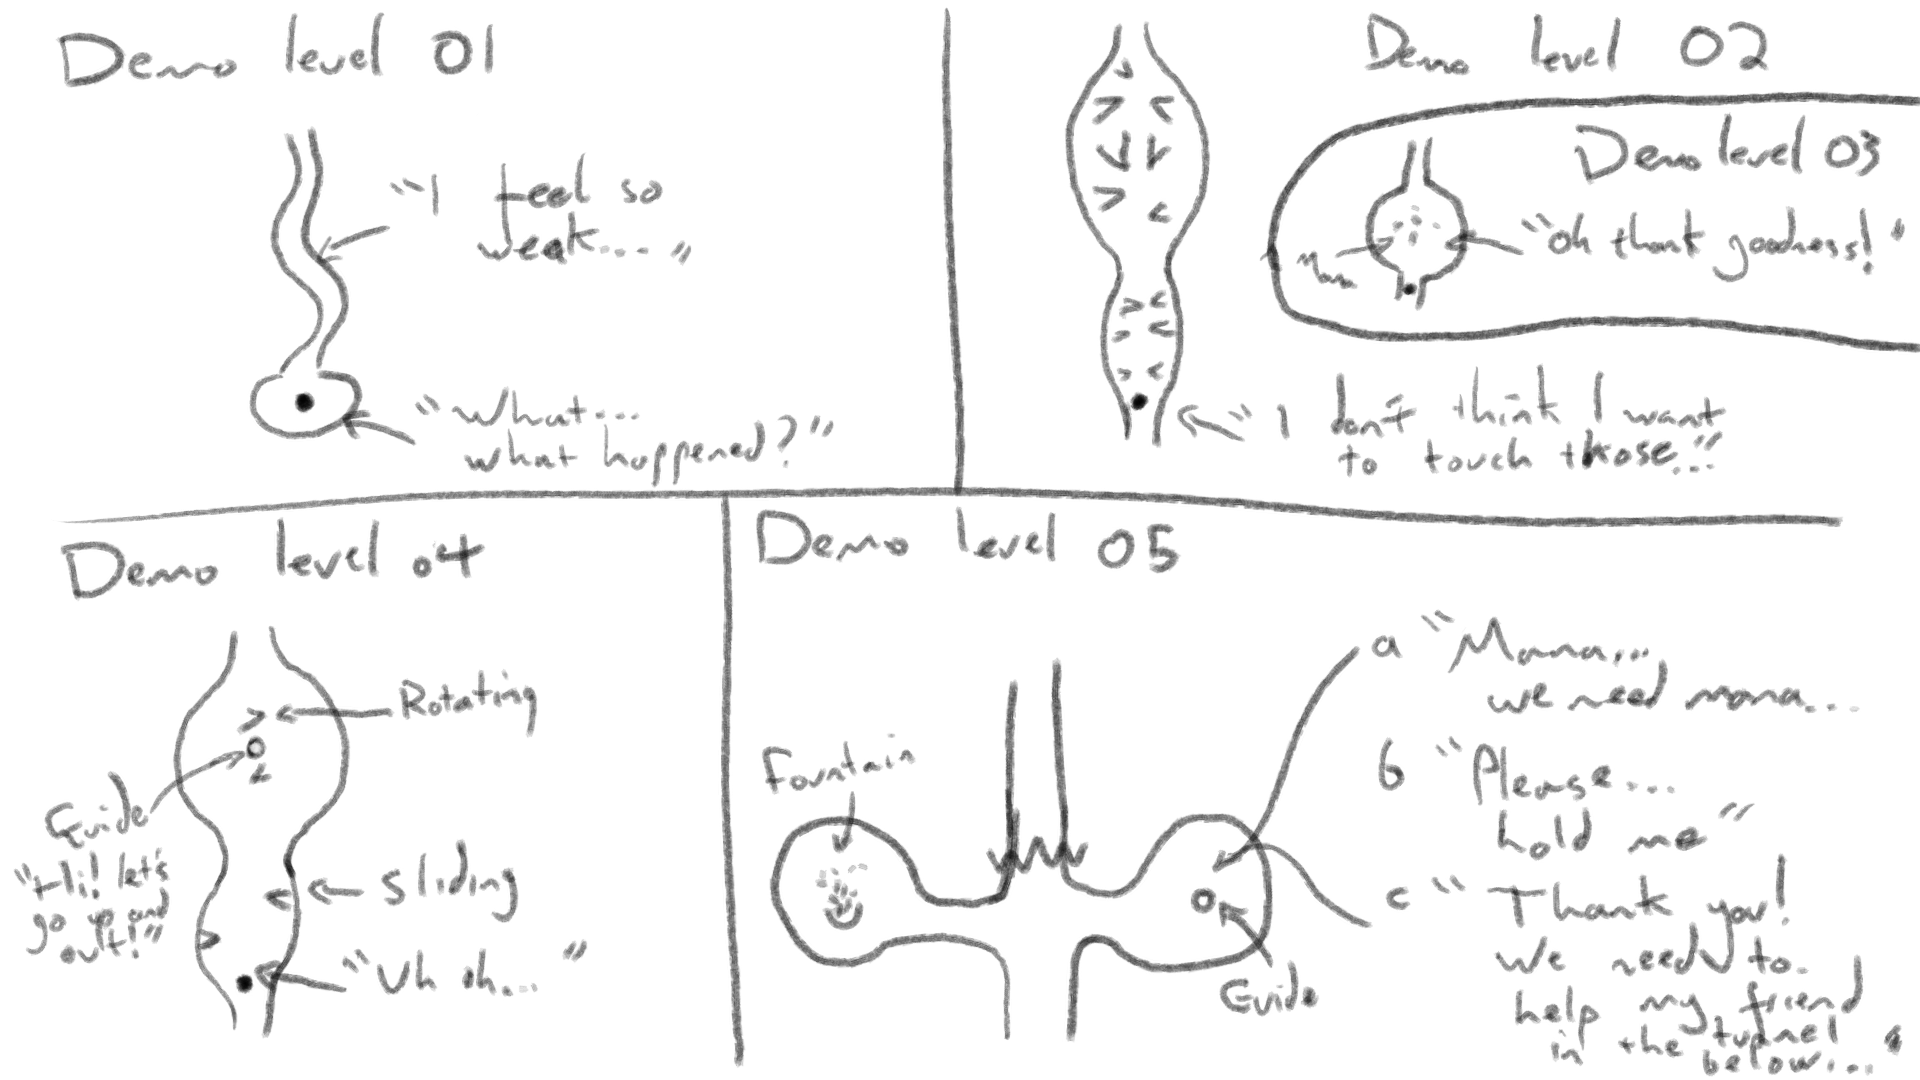 Demo level 01
"I feel so
weak...."
"What...
what happened?"
Demo level 02
Demo level 03
"Oh thank goodness!"
Mana
"I don't think I want
to touch those..."
Demo level 04
Rotating
Guide
"Hi! let's
go up and
out!"
Sliding
"Uh oh..."
Demo level 05
Fountain
Guide
a "Mana...
we need mana...
b "Please...
hold me"
c "Thank you!
We need to
help my friend
in the tunnel
below..."